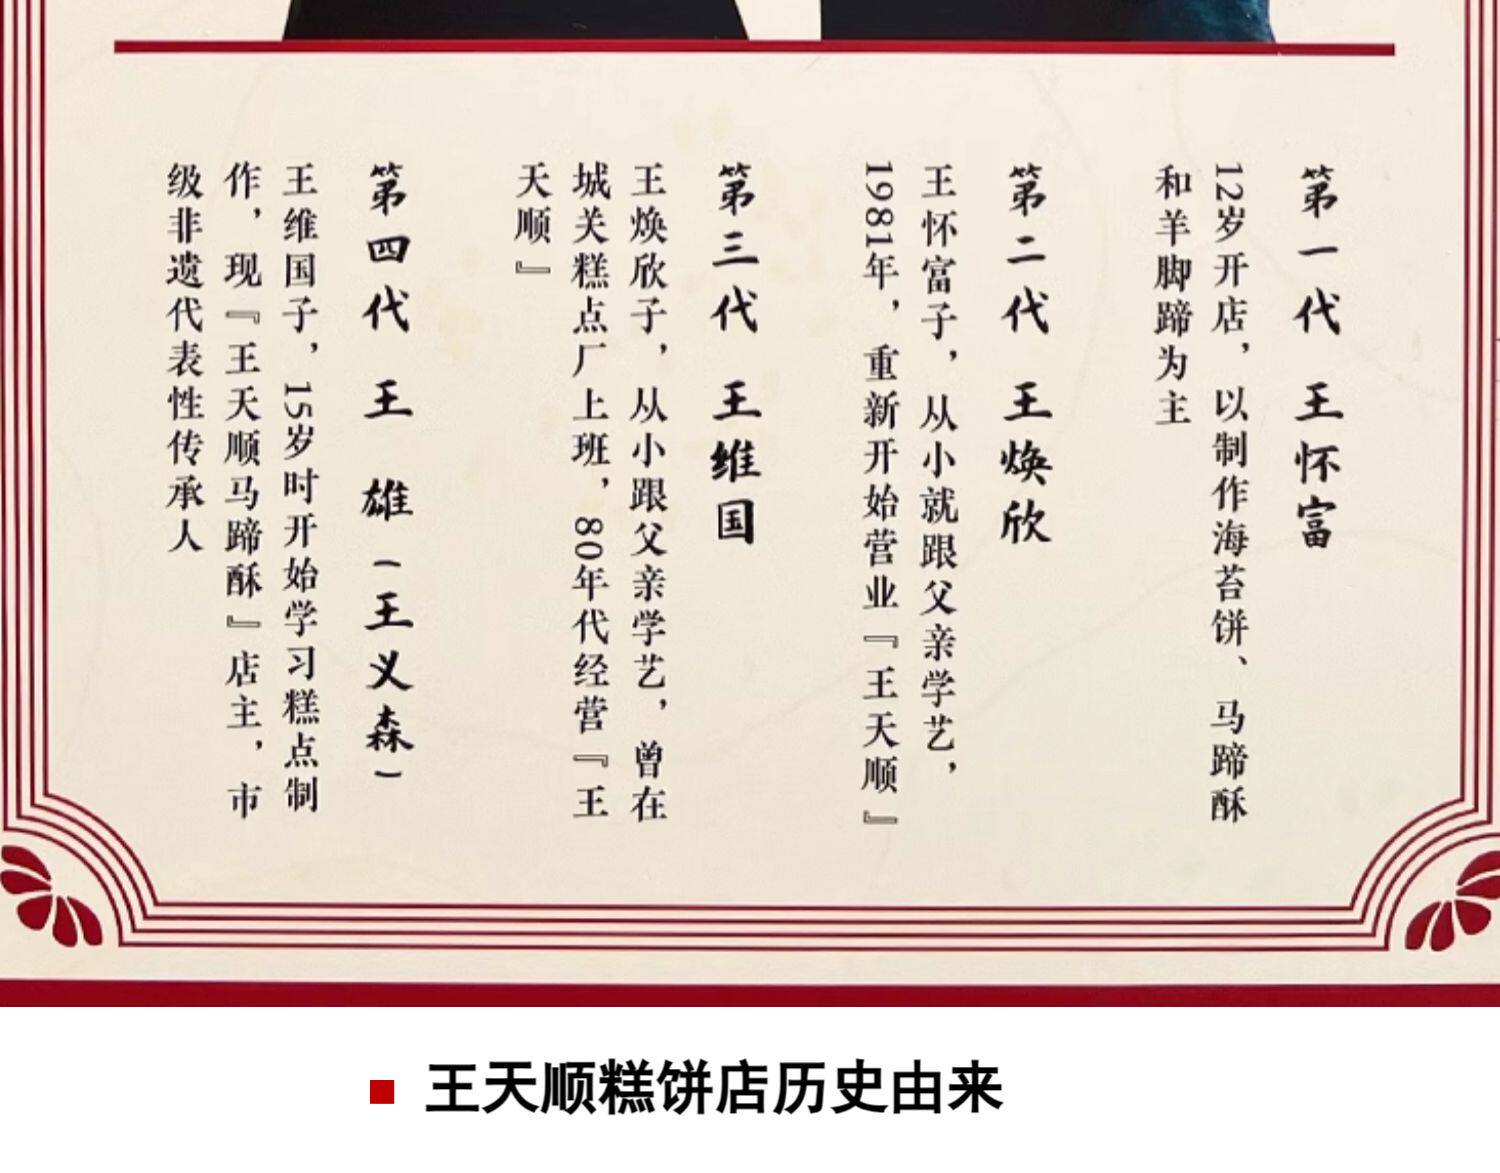 第一代 王怀富
12岁开店，以制作海苔饼、马蹄酥
和羊脚蹄为主
第二代 王焕欣
王怀富子，从小就跟父亲学艺，
1981年，重新开始营业『王天顺』
第三代 王维国
王焕欣子，从小跟父亲学艺，曾在
城关糕点厂上班，80年代经营『王
天顺』
第四代 王 雄（王义森）
王维国子，15岁时开始学习糕点制
作，现『王天顺马蹄酥』店主，市
级非遗代表性传承人
王天顺糕饼店历史由来